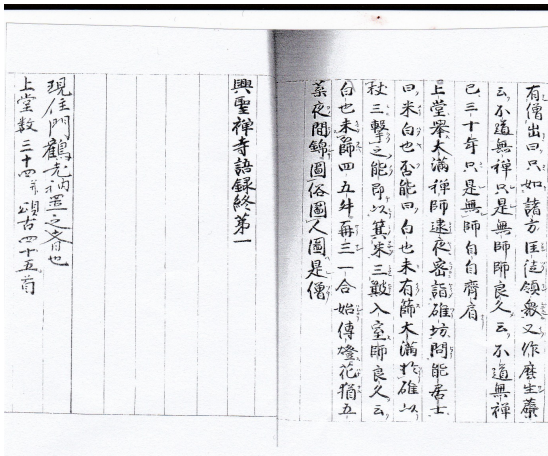 有僧出曰只如諸方匡徒領衆又作麼生蘗
云不道無禪只是無師師良久云不道無禪
已三十年只是無師自自齊肩
上堂舉大滿禪師逮夜密詣碓坊問能居士
曰米白也否能曰白也未有篩大滿於碓以
杖三擊之能即以箕米三皷入室師良久云
白也未篩四五舛再三一合始傳燈花猶五
葉夜間錦圖俗圖人圖是僧
興聖禪寺語録終第一
現住門鶴老衲置之者也
上堂数三十四 頌古四十五首